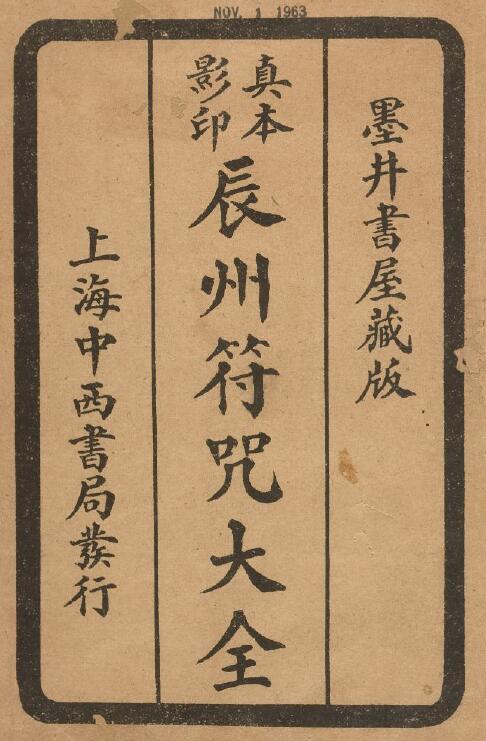 NOV. 1 1963
墨井書屋藏版
真本
影印
辰州符咒大全
上海中西書局發行